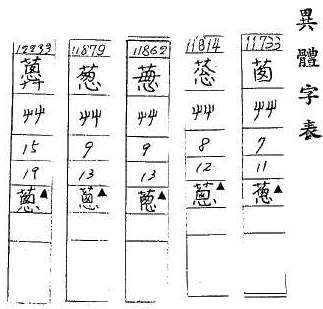 異體字表
11733
艸
7
11
蔥▲
11814
艸
8
12
蔥▲
11862
艸
9
13
蔥▲
11879
葱
艸
9
13
蔥▲
12233
艸
15
19
蔥▲